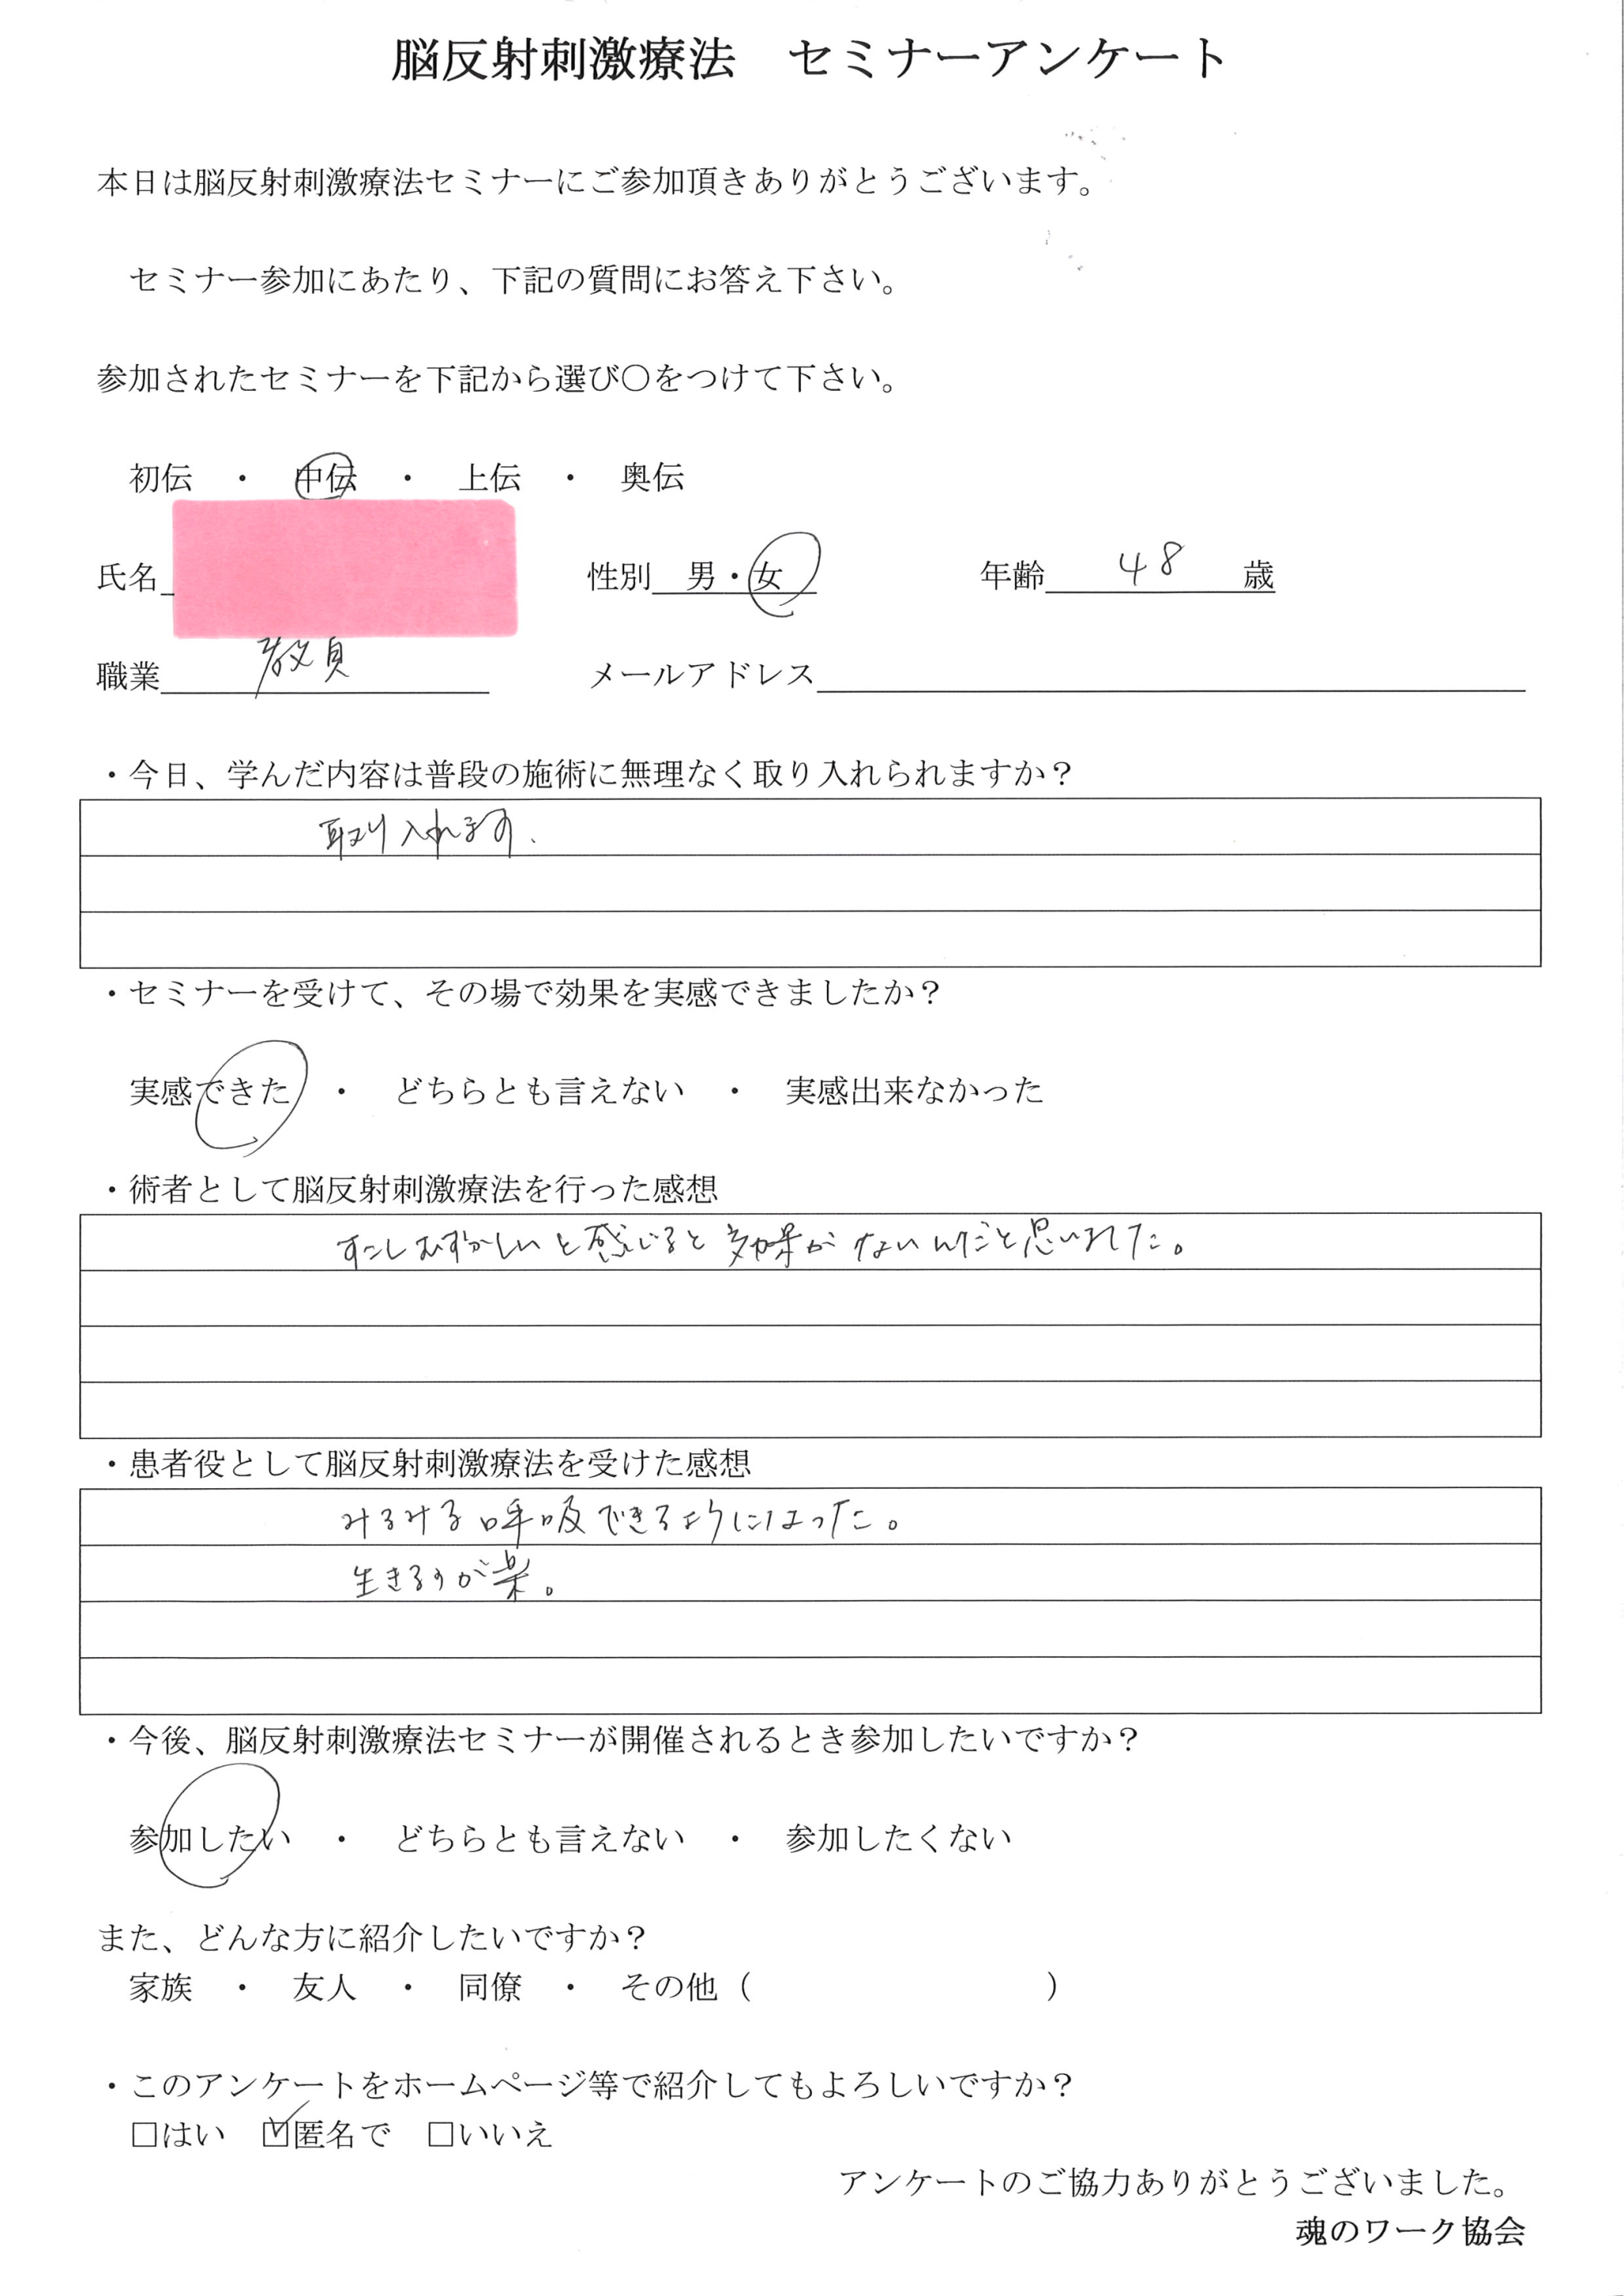 脳反射刺激療法　セミナーアンケート
本日は脳反射刺激療法セミナーにご参加頂きありがとうございます。
セミナー参加にあたり、下記の質問にお答え下さい。
参加されたセミナーを下記から選び〇をつけて下さい。
初伝　・　中伝　・　上伝　・　奥伝
氏名　性別　男・女　年齢　48　歳
職業　教員　メールアドレス
・今日、学んだ内容は普段の施術に無理なく取り入れられますか？
取り入れます.
・セミナーを受けて、その場で効果を実感できましたか？
実感できた　・　どちらとも言えない　・　実感出来なかった
・術者として脳反射刺激療法を行った感想
すこしむずかしいと感じると効果がないんだと思いました。
・患者役として脳反射刺激療法を受けた感想
みるみる呼吸できるようになった。
生きるのが楽。
・今後、脳反射刺激療法セミナーが開催されるとき参加したいですか？
参加したい　・　どちらとも言えない　・　参加したくない
また、どんな方に紹介したいですか？
家族　・　友人　・　同僚　・　その他（　　　　　　　　　）
・このアンケートをホームページ等で紹介してもよろしいですか？
□はい　☑匿名で　□いいえ
アンケートのご協力ありがとうございました。
魂のワーク協会